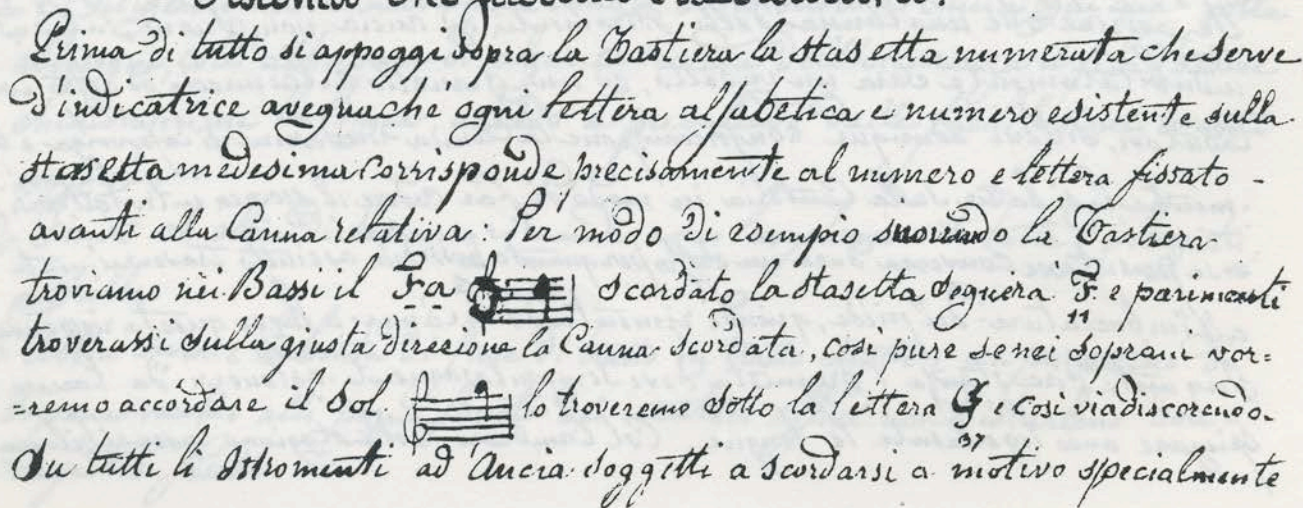 Prima di tutto si appoggi sopra la Tastiera la stasetta numerata che serve
d'indicatrice avegnachè ogni lettera alfabetica e numero esistente sulla
stasetta medesima corrisponde precisamente al numero e lettera fissato -
avanti alla Canna relativa: Per modo di esempio suonando la Tastiera
troviamo nei Bassi il Fa scordato la stasetta segnerà F. e parimenti
11
troverassi sulla giusta direzione la Canna scordata, così pure se nei soprani vor=
=remo accordare il Sol. lo troveremo sotto la lettera G e così via discorendo.
37
Su tutti li Istromenti ad Ancia soggetti a scordarsi a motivo specialmente